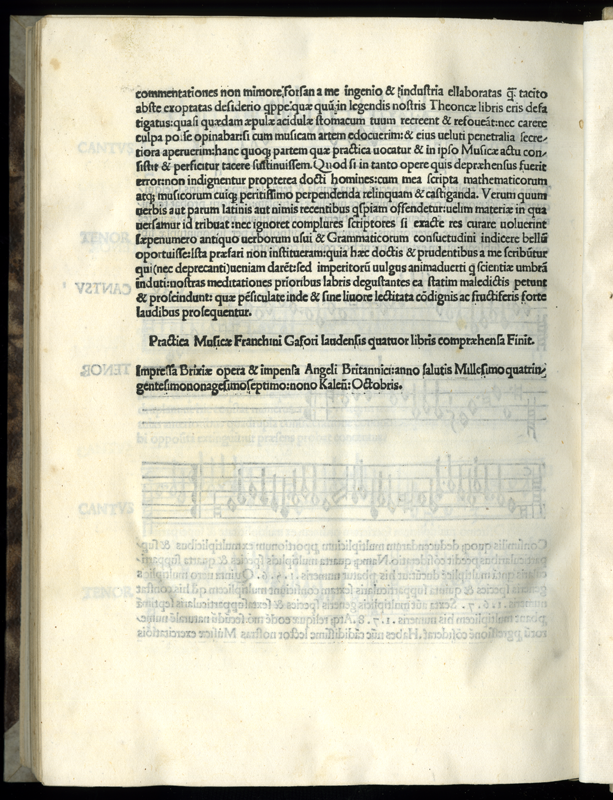 commentationes non mimore, forsan a me ingenio & industria ellaboratas q̃ tacito
abste exoptatas desiderio qppe: quæ quũ in legendis nostris Theoricæ libris eris defa
tigatus: quasi quædam æpulæ acidulæ stomacum tuum recreent & refoueãt: nec carere
culpa posse opinabar: si cum musicam artem edocuerim: & eius ueluti penetralia secre-
tiora aperuerim: hanc quoq; partem quæ practica uocatur & in ipso Musicæ actu con-
sistit & perficitur tacere sustinuissem. Quod si in tanto opere quis depræhensus fuerit
error: non indignentur propterea docti homines: cum mea scripta mathematicorum
atq; musicorum cuiq; peritissimo perpendenda relinquam & castiganda. Verum quum
uerbis aut parum latinis aut nimis recentibus qspiam offendetur: uelim materiæ in qua
uersamur id tribuat: nec ignoret complures scriptores si exacte res curare uoluerint
sæpenumero antiquo uerborum usui & Grammaticorum consuetudini indicere bellũ
oportuisse: Ista præfari non institueram: quia hæc doctis & prudentibus a me scribũtur
qui (nec deprecanti) ueniam darẽt: sed imperitorũ uulgus animaduerti q scientiæ umbrã
induti: nostras meditationes prioribus labris degustantes ea statim maledictis petunt
& proscindunt: quæ pẽsiculate inde & sine liuore lectitata cõdignis ac fructiferis forte
laudibus prosequentur.
Practica Musicæ Franchini Gafori laudensis quatuor libris compræhensa Finit.
Impressa Brixiæ opera & impensa Angeli Britannici: anno salutis Millesimo quatrin-
gentesimononagesimoseptimo: nono Kaleñ: Octobris.